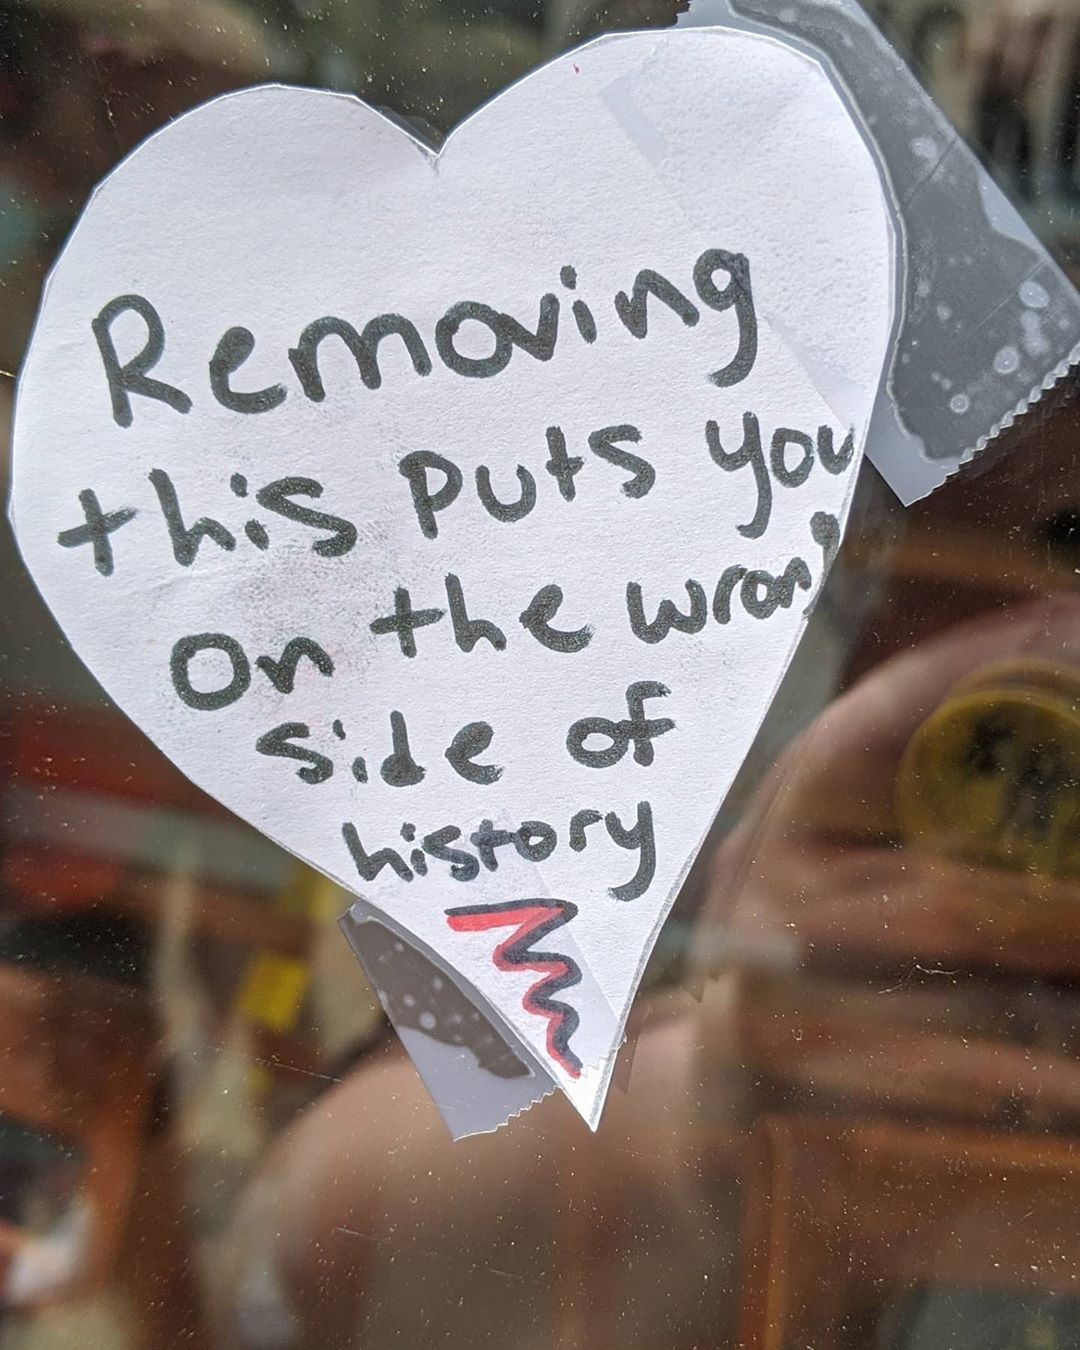 Removing
this puts you
on the wrong
side of
history